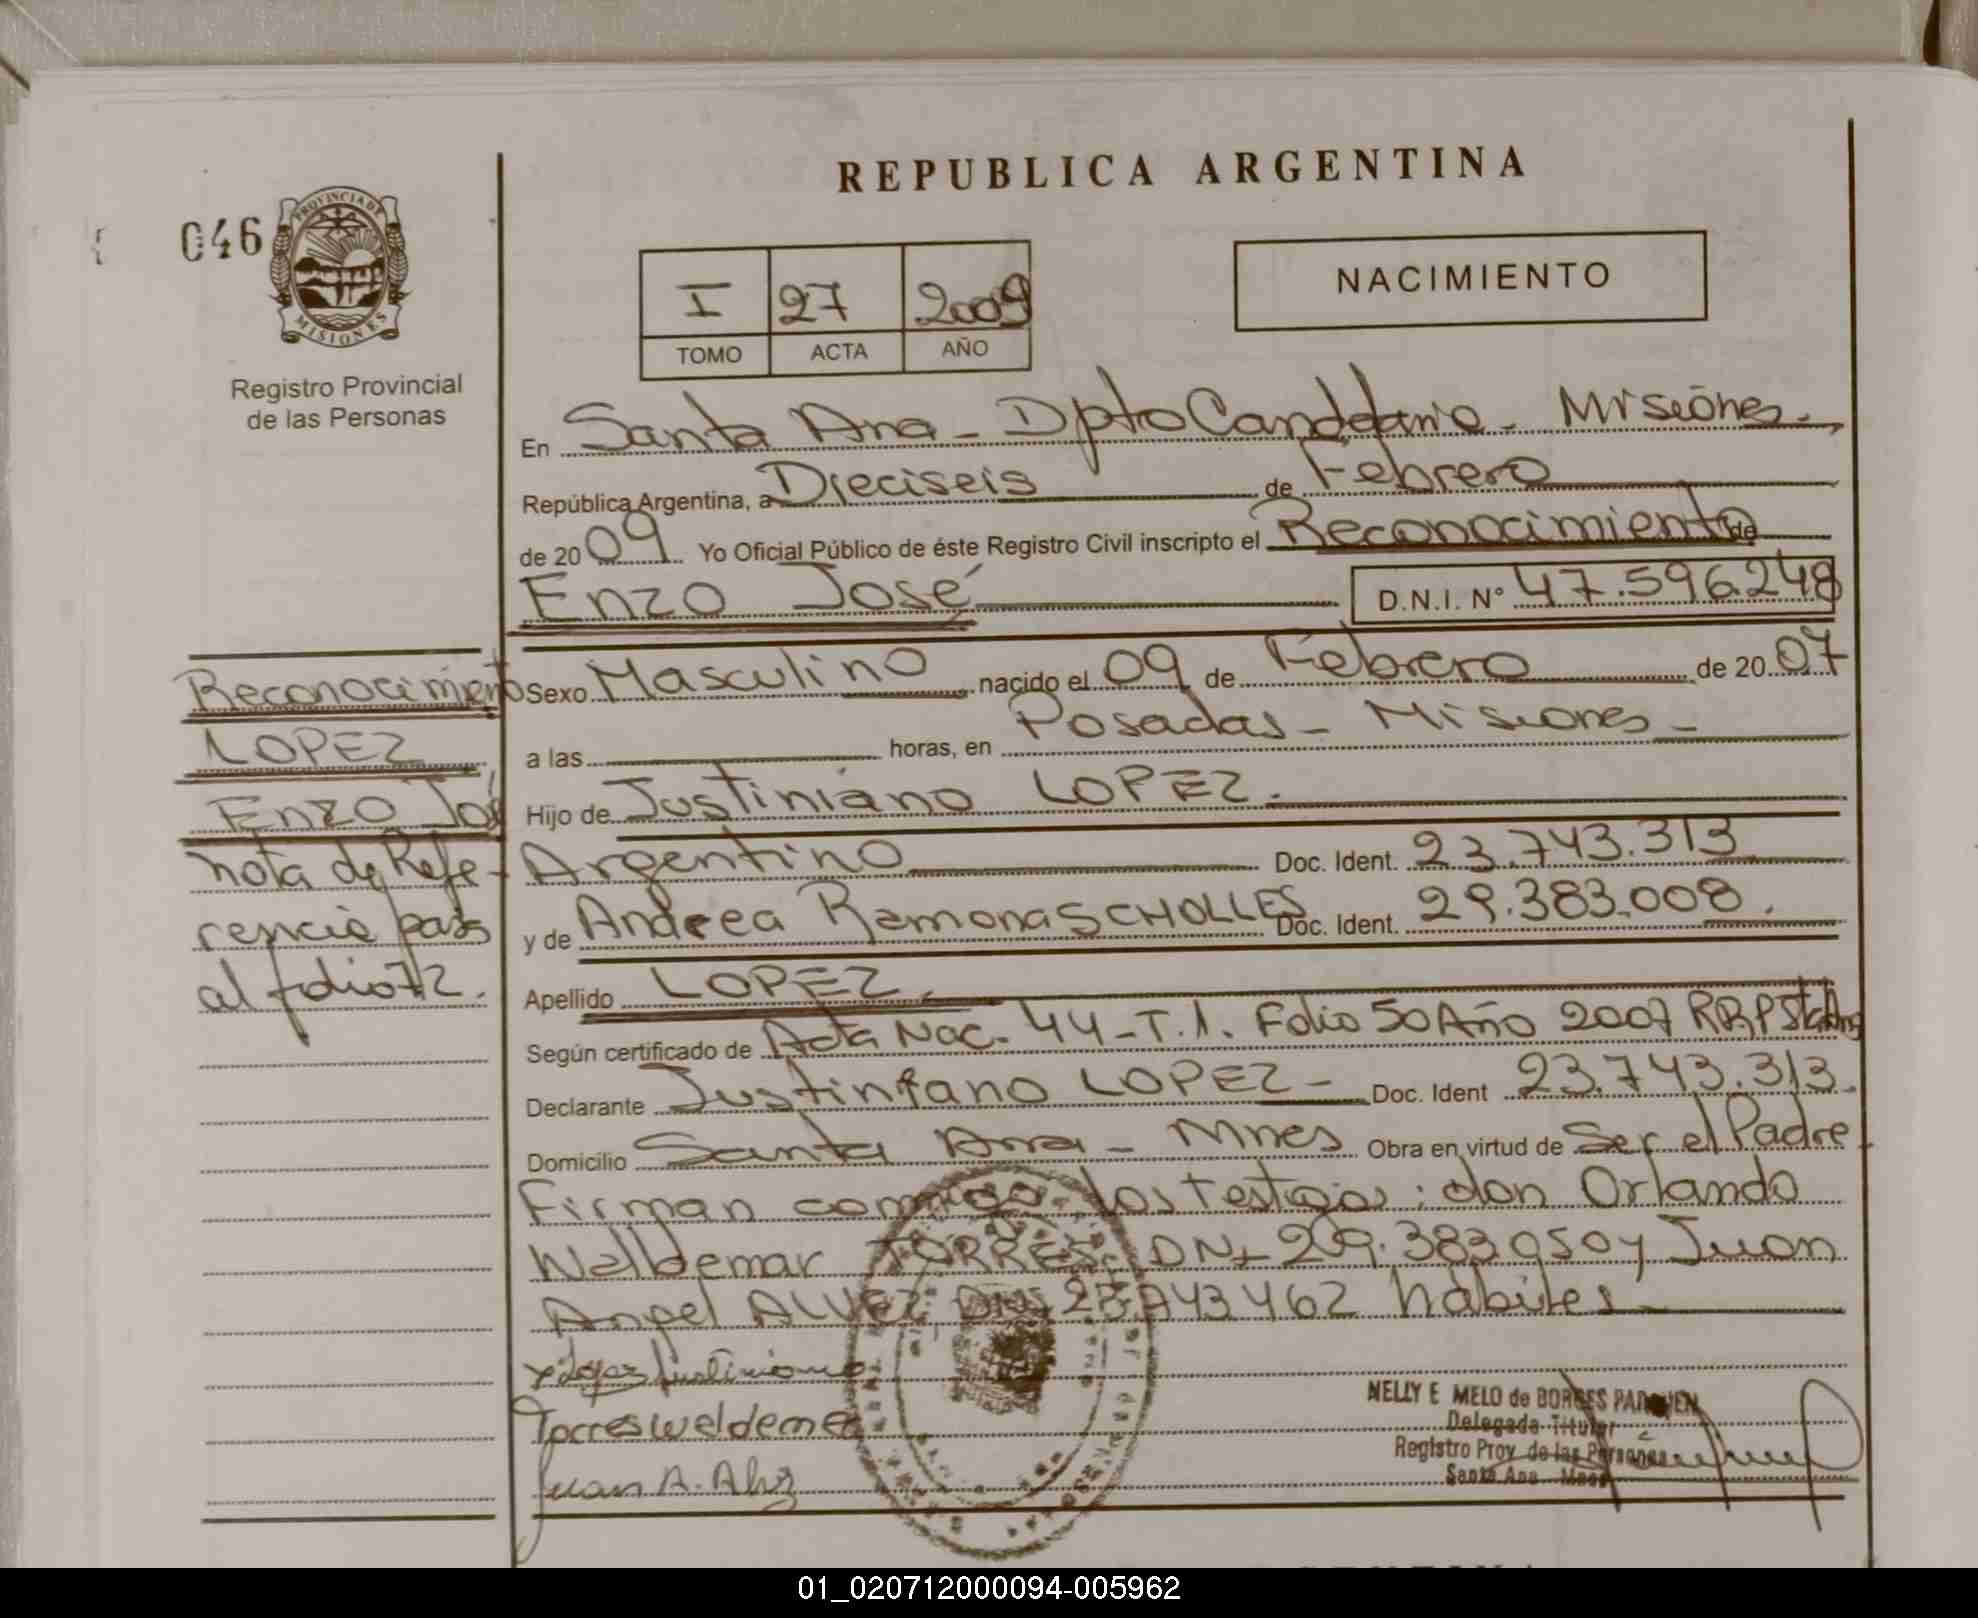 REPUBLICA ARGENTINA
046
PROVINCIA DE
MISIONES
Registro Provincial
de las Personas
I 27 2009
TOMO ACTA AÑO
NACIMIENTO
En Santa Ana - Dpto Candelaria - Misiones -
República Argentina, a Dieciseis de Febrero
de 2009 Yo Oficial Público de éste Registro Civil inscripto el Reconocimiento de
Enzo José D.N.I. N° 47.596.248
Sexo Masculino nacido el 09 de Febrero de 2007
a las horas, en Posadas - Misiones -
Hijo de Justiniano LOPEZ.
Argentino Doc. Ident. 23.743.313
y de Andrea Ramona SCHOLLES Doc. Ident. 29.383.008.
Apellido LOPEZ.
Según certificado de Acta Nac. 44-T.1. Folio 50 Año 2007 RPP Sta Ana
Declarante Justiniano LOPEZ - Doc. Ident 23.743.313.
Domicilio Santa Ana - Mnes Obra en virtud de Ser el Padre.
Firman conmigo los testigos: don Orlando
Waldemar TORRES. DNI 29.383.050 y Juan
Angel ALVEZ DNI 23.743462 hábiles -
Reconocimiento
LOPEZ
Enzo José
nota de Refe-
rencia pasa
al folio 72.
x Lopez Justiniano
Torres Weldemar
Juan A. Alvz
NELLY E MELO de BORGES
Delegada Titular
Registro Prov. de las Personas
Santa Ana - Mnes
01_020712000094-005962